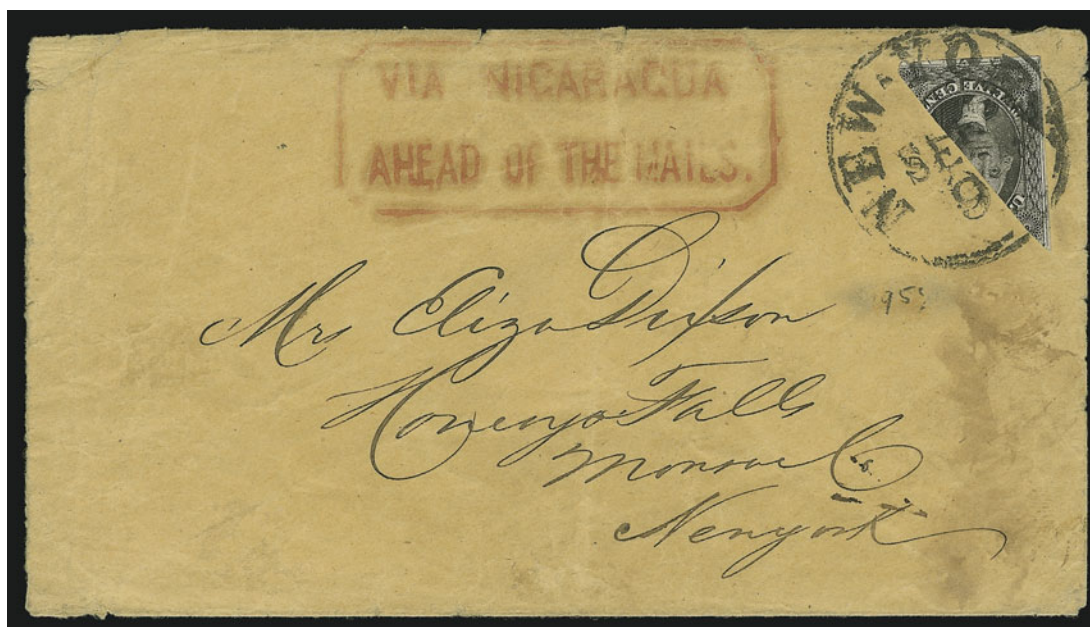 VIA NICARAGUA
AHEAD OF THE MAILS.
NEW-YO
SEP
9
LVE CEN
Mrs Eliza Dixson
Honeoye Falls
Monroe Co.
New york